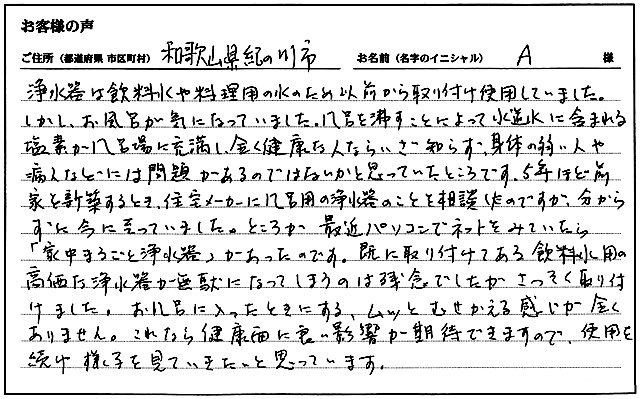 お客様の声
ご住所（都道府県 市区町村） 和歌山県紀の川市 お名前（名字のイニシャル） A 様
浄水器は飲料水や料理用の水のため以前から取り付け使用していました。
しかし、お風呂が気になっていました。風呂を沸すことによって水道水に含まれる
塩素が風呂場に充満し、全く健康な人ならいざ知らず、身体の弱い人や
病人などには問題があるのではないかと思っていたところです。5年ほど前
家を新築するとき、住宅メーカーに風呂用の浄水器のことを相談したのですが、分から
ずに今に至っていました。ところが 最近パソコンでネットをみていたら
「家中まるごと浄水器」があったのです。既に取り付けてある飲料水用の
高価な浄水器が無駄になってしまうのは残念でしたがさっそく取り付
けました。お風呂に入ったときにする、ムッとむせかえる感じが全く
ありません。これなら健康面に良い影響が期待できますので、使用を
続け様子を見ていきたいと思っています。